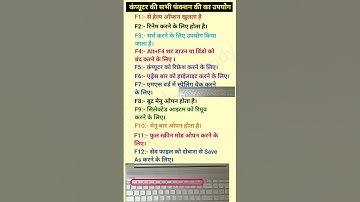 कंप्यूटर की सभी फंक्शन की का उपयोग
F1:- से हेल्प ऑप्शन खुलता है
F2:- रिनेम करने के लिए होता है।
F3:- सर्च करने के लिए उपयोग किया
जाता है।
F4:- Alt+F4 शट डाउन या विंडो को
बंद करने के लिए ।
F5:- कंप्यूटर को रिफ्रेश करने के लिए।
F6:- एड्रेस बार को हाईलाइट करने के लिए।
F7:- एमएस वर्ड में स्पेलिंग चेक करने
के लिए।
F8:- बूट मेनू ओपन होता है।
F9:- सिलेक्टेड आइटम को रिमूव
करने के लिए।
F10:- मेनू बार ओपन होता है।
F11:- फुल स्क्रीन मोड ओपन करने के
लिए।
F12:- सेव फाइल को दोबारा से Save
As करने के लिए।